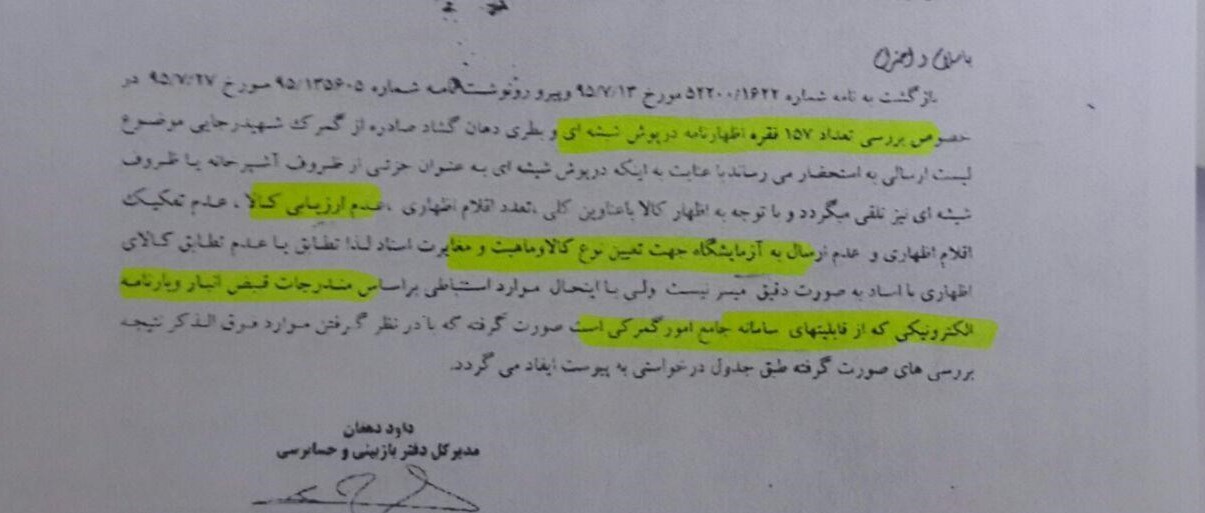 باسلام و احترام
بازگشت به نامه شماره ۵۲۲۰۰/۱۶۲۲ مورخ ۹۵/۷/۱۳ و پیرو رونوشت نامه شماره ۹۵/۱۳۵۶۰۵ مورخ ۹۵/۷/۲۷ در
خصوص بررسی تعداد ۱۵۷ فقره اظهارنامه درپوش شیشه ای و بطری دهان گشاد صادره از گمرک شهیدرجایی موضوع
لیست ارسالی به استحضار می رساند با عنایت به اینکه درپوش شیشه ای به عنوان جزئی از ظروف آشپزخانه یا ظروف
شیشه ای نیز تلقی میگردد و با توجه به اظهار کالا باعناوین کلی ،تعدد اقلام اظهاری ،عدم ارزیابی کالا ، عدم تفکیک
اقلام اظهاری و عدم ارسال به آزمایشگاه جهت تعیین نوع کالاوماهیت و مغایرت اسناد لذا تطابق یا عدم تطابق کالای
اظهاری با اسناد به صورت دقیق میسر نیست ولی با اینحال موارد استنباطی براساس مندرجات قبض انبار وبارنامه
الکترونیکی که از قابلیتهای سامانه جامع امورگمرکی است صورت گرفته که با در نظر گرفتن موارد فوق الذکر نتیجه
بررسی های صورت گرفته طبق جدول درخواستی به پیوست ایفاد می گردد.
داود دهقان
مدیرکل دفتر بازبینی و حسابرسی